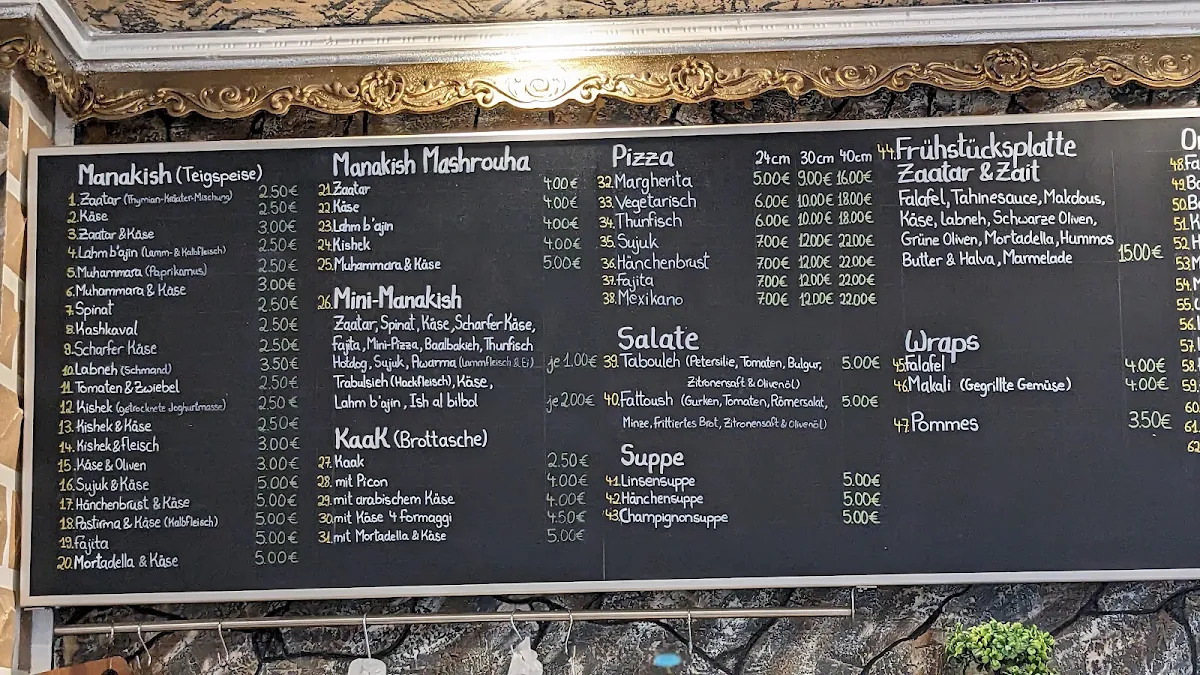 Manakish (Teigspeise)
1. Zaatar (Thymian-Kräuter-Mischung) 2.50€
2. Käse 2.50€
3. Zaatar & Käse 3.00€
4. Lahm b'ajin (Lamm- & Kalbfleisch) 2.50€
5. Muhammara (Paprikamus) 2.50€
6. Muhammara & Käse 3.00€
7. Spinat 2.50€
8. Kashkaval 2.50€
9. Scharfer Käse 2.50€
10. Labneh (Schmand) 3.50€
11. Tomaten & Zwiebel 2.50€
12. Kishek (getrocknete Joghurtmasse) 2.50€
13. Kishek & Käse 2.50€
14. Kishek & Fleisch 3.00€
15. Käse & Oliven 3.00€
16. Sujuk & Käse 5.00€
17. Hänchenbrust & Käse 5.00€
18. Pastirma & Käse (Kalbfleisch) 5.00€
19. Fajita 5.00€
20. Mortadella & Käse 5.00€
Manakish Mashrouha
21. Zaatar 4.00€
22. Käse 4.00€
23. Lahm b'ajin 4.00€
24. Kishek 4.00€
25. Muhammara & Käse 5.00€
26. Mini-Manakish
Zaatar, Spinat, Käse, Scharfer Käse,
Fajita, Mini-Pizza, Baalbakieh, Thunfisch
Hotdog, Sujuk, Awarma (Lammfleisch & Ei) je 1.00€
Trabulsieh (Hackfleisch), Käse,
Lahm b'ajin, Ish al bilbol je 2.00€
Kaak (Brottasche)
27. Kaak 2.50€
28. mit Picon 4.00€
29. mit arabischem Käse 4.00€
30. mit Käse 4 formaggi 4.50€
31. mit Mortadella & Käse 5.00€
Pizza 24cm 30cm 40cm
32. Margherita 5.00€ 9.00€ 16.00€
33. Vegetarisch 6.00€ 10.00€ 18.00€
34. Thunfisch 6.00€ 10.00€ 18.00€
35. Sujuk 7.00€ 12.00€ 22.00€
36. Hänchenbrust 7.00€ 12.00€ 22.00€
37. Fajita 7.00€ 12.00€ 22.00€
38. Mexikano 7.00€ 12.00€ 22.00€
Salate
39. Tabouleh (Petersilie, Tomaten, Bulgur, 5.00€
Zitronensaft & Olivenöl)
40. Fattoush (Gurken, Tomaten, Römersalat, 5.00€
Minze, Frittiertes Brot, Zitronensaft & Olivenöl)
Suppe
41. Linsensuppe 5.00€
42. Hänchensuppe 5.00€
43. Champignonsuppe 5.00€
44. Frühstücksplatte
Zaatar & Zait
Falafel, Tahinesauce, Makdous,
Käse, Labneh, Schwarze Oliven,
Grüne Oliven, Mortadella, Hummos
Butter & Halva, Marmelade 15.00€
Wraps
45. Falafel 4.00€
46. Makali (Gegrillte Gemüse) 4.00€
47. Pommes 3.50€
48.
49.
50.
51.
52.
53.
54.
55.
56.
57.
58.
59.
60.
61.
62